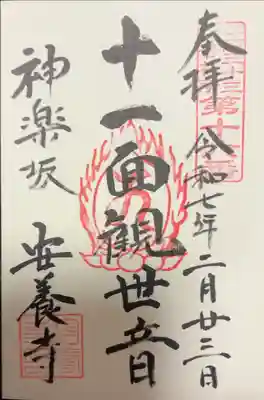 奉拝
令和七年二月廿三日
十一面観世音
神楽坂
安養寺